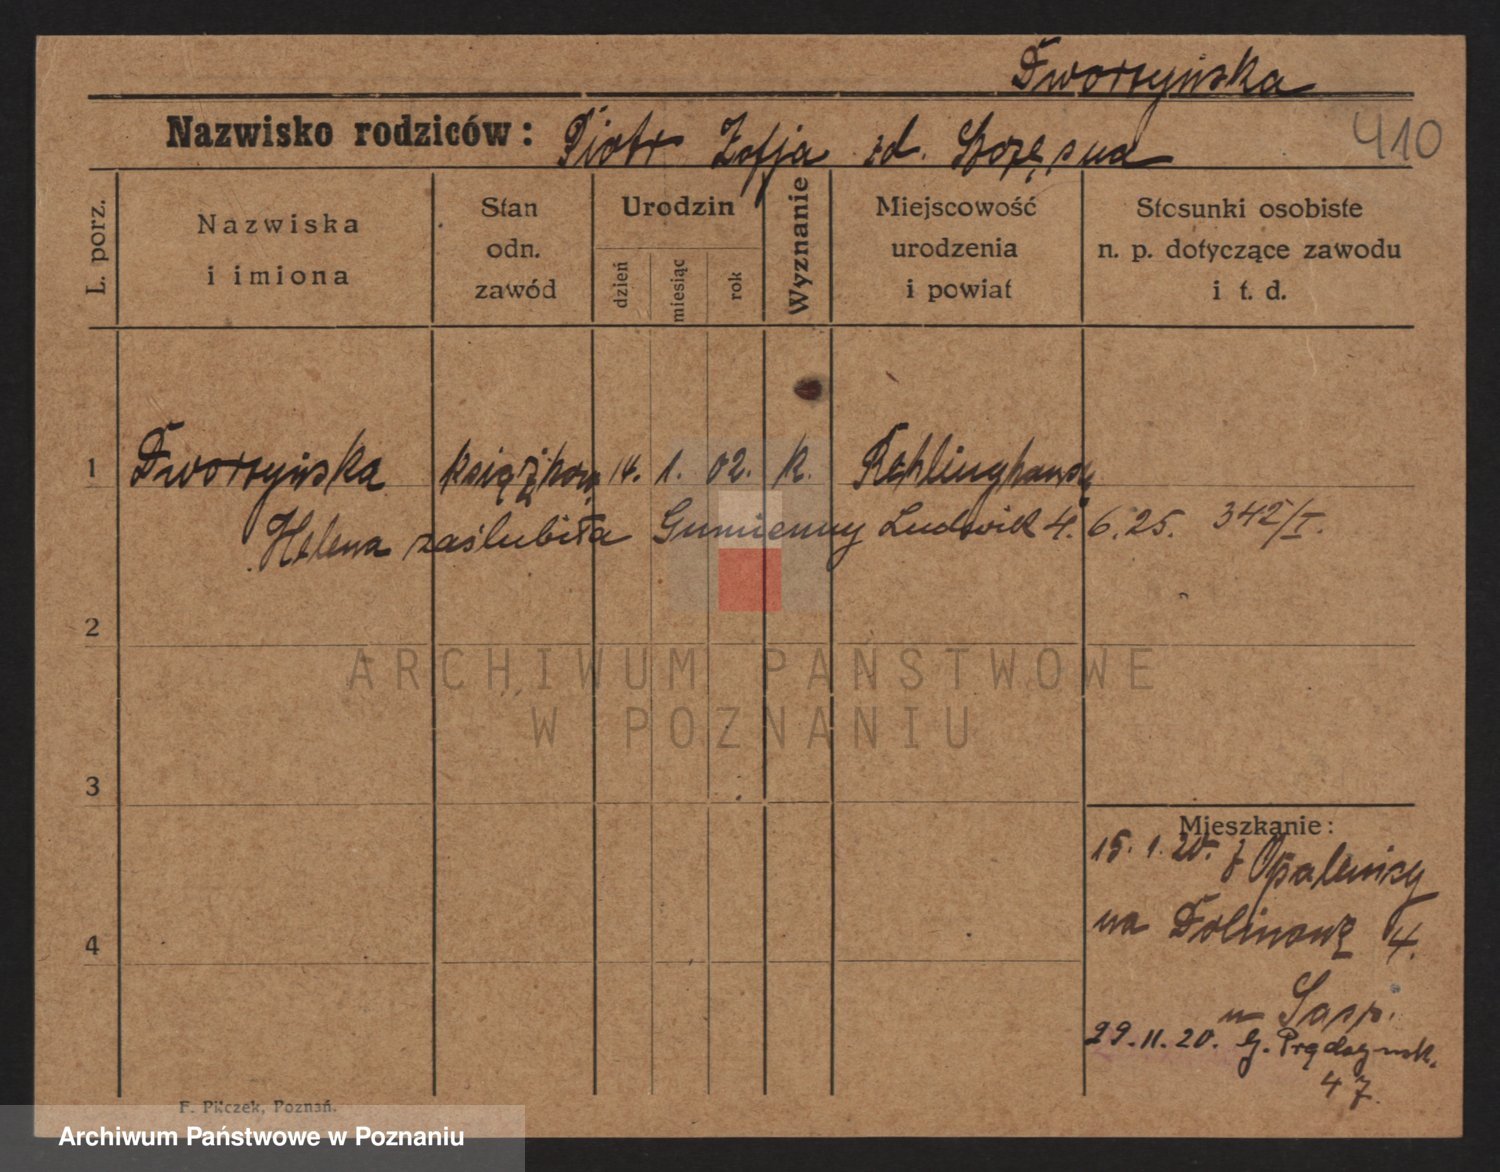 Dworzyńska
Nazwisko rodziców: Piotr Zofja zd. Szczęsna
410
L. porz.
Nazwiska
i imiona
Stan
odn.
zawód
Urodzin
dzień
miesiąc
rok
Wyznanie
Miejscowość
urodzenia
i powiat
Stosunki osobiste
n. p. dotyczące zawodu
i t. d.
1 Dworzyńska książkow. 14. 1. 02. k.
Helena zaślubiła Gumienny Ludwik 4. 6. 25. 342/I.
2
3
4
Mieszkanie:
15. 1. 20. z Opalenicy
na 4.
u
29. 11. 20. G. Prądzyńsk.
47.
F. Pilczek, Poznań.
ARCHIWUM PAŃSTWOWE
W POZNANIU
Archiwum Państwowe w Poznaniu